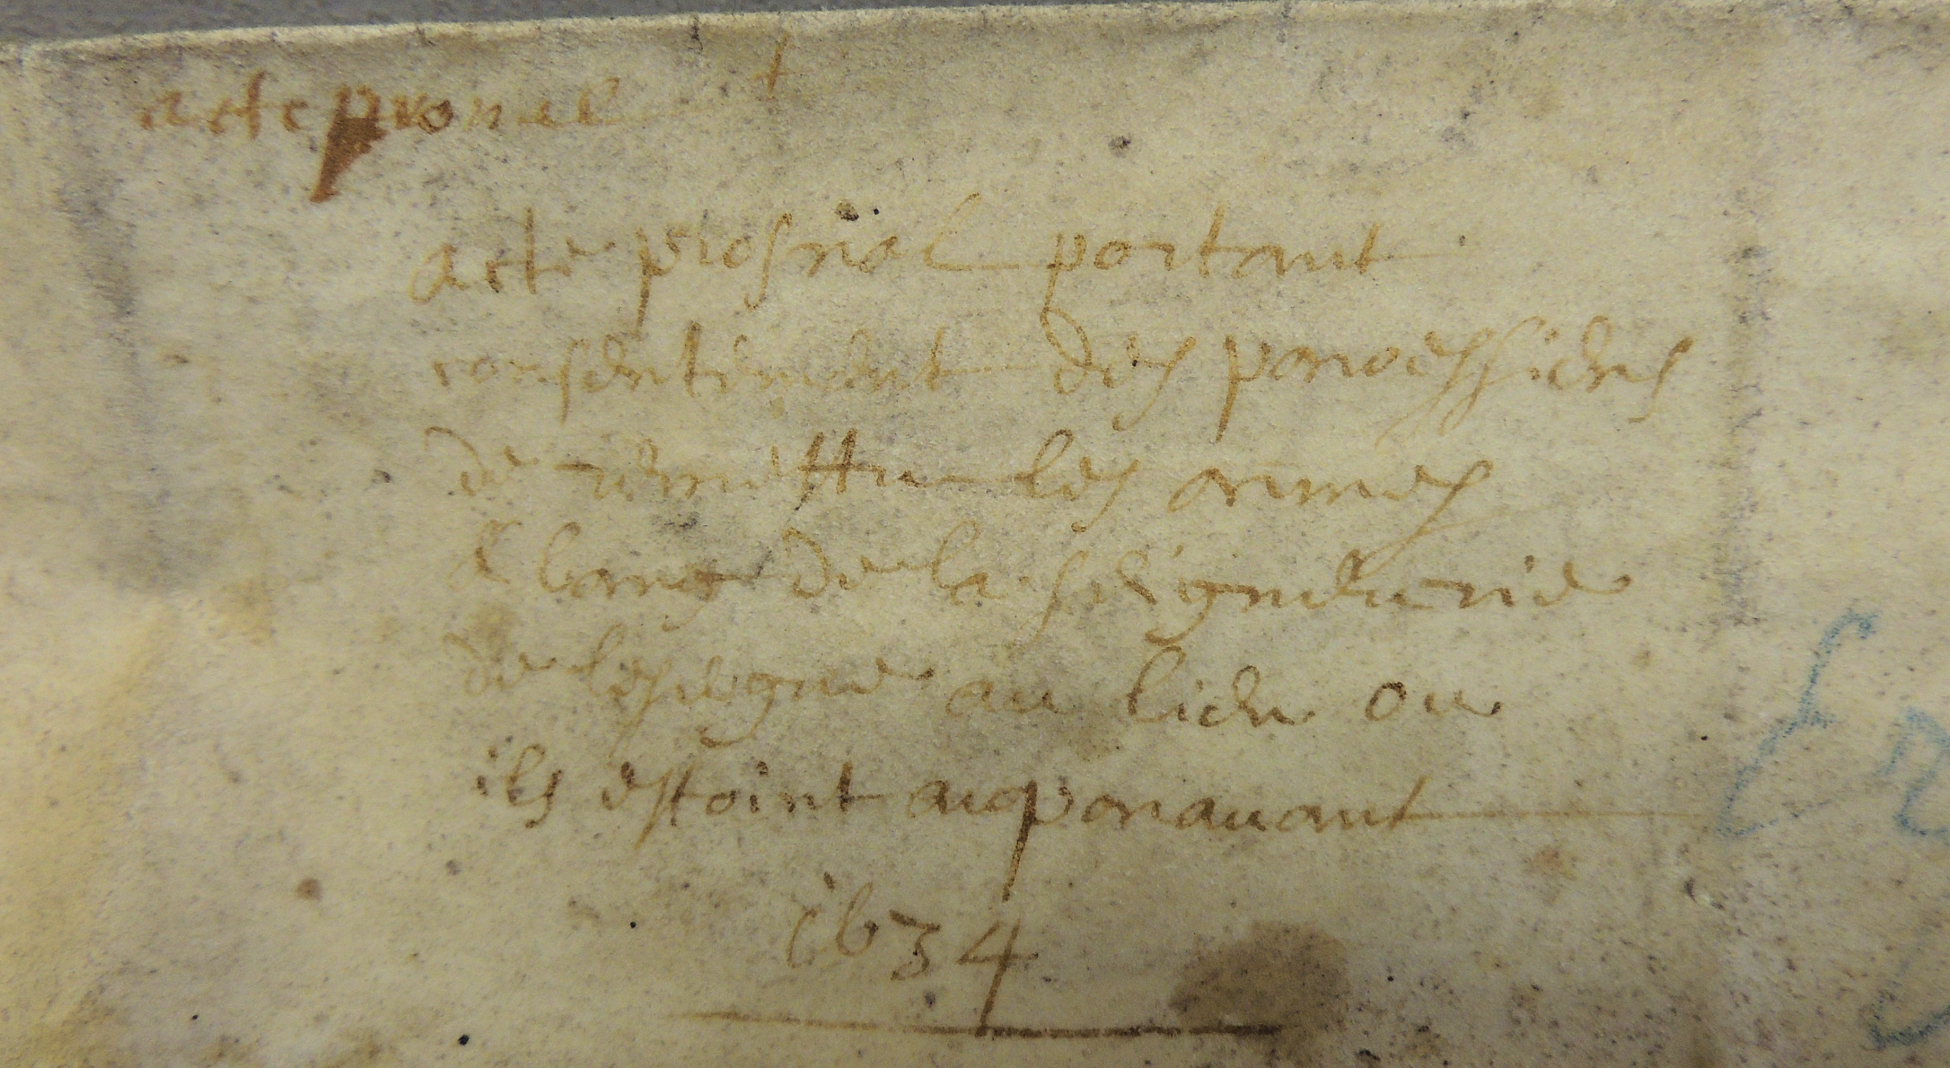 acte pronal
acte prosnal portant
consentement des paroessiens
de remettre les armes
& banc de la seigneurie
de lesvegne au lieu ou
ils estoint auparavant
1634